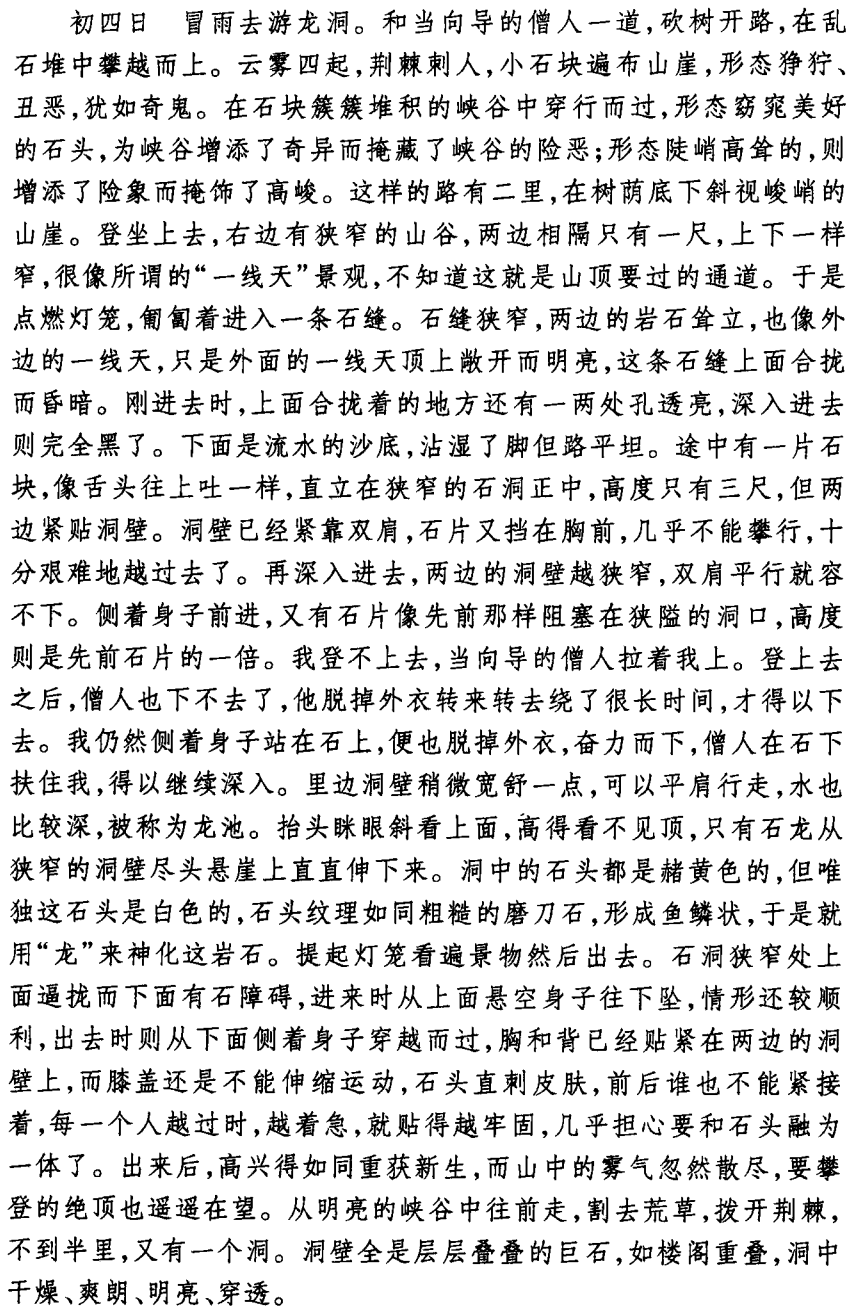 初四日　冒雨去游龙洞。和当向导的僧人一道,砍树开路,在乱
石堆中攀越而上。云雾四起,荆棘刺人,小石块遍布山崖,形态狰狞、
丑恶,犹如奇鬼。在石块簇簇堆积的峡谷中穿行而过,形态窈窕美好
的石头,为峡谷增添了奇异而掩藏了峡谷的险恶;形态陡峭高耸的,则
增添了险象而掩饰了高峻。这样的路有二里,在树荫底下斜视峻峭的
山崖。登坐上去,右边有狭窄的山谷,两边相隔只有一尺,上下一样
窄,很像所谓的“一线天”景观,不知道这就是山顶要过的通道。于是
点燃灯笼,匍匐着进入一条石缝。石缝狭窄,两边的岩石耸立,也像外
边的一线天,只是外面的一线天顶上敞开而明亮,这条石缝上面合拢
而昏暗。刚进去时,上面合拢着的地方还有一两处孔透亮,深入进去
则完全黑了。下面是流水的沙底,沾湿了脚但路平坦。途中有一片石
块,像舌头往上吐一样,直立在狭窄的石洞正中,高度只有三尺,但两
边紧贴洞壁。洞壁已经紧靠双肩,石片又挡在胸前,几乎不能攀行,十
分艰难地越过去了。再深入进去,两边的洞壁越狭窄,双肩平行就容
不下。侧着身子前进,又有石片像先前那样阻塞在狭隘的洞口,高度
则是先前石片的一倍。我登不上去,当向导的僧人拉着我上。登上去
之后,僧人也下不去了,他脱掉外衣转来转去绕了很长时间,才得以下
去。我仍然侧着身子站在石上,便也脱掉外衣,奋力而下,僧人在石下
扶住我,得以继续深入。里边洞壁稍微宽舒一点,可以平肩行走,水也
比较深,被称为龙池。抬头眯眼斜看上面,高得看不见顶,只有石龙从
狭窄的洞壁尽头悬崖上直直伸下来。洞中的石头都是赭黄色的,但唯
独这石头是白色的,石头纹理如同粗糙的磨刀石,形成鱼鳞状,于是就
用“龙”来神化这岩石。提起灯笼看遍景物然后出去。石洞狭窄处上
面逼拢而下面有石障碍,进来时从上面悬空身子往下坠,情形还较顺
利,出去时则从下面侧着身子穿越而过,胸和背已经贴紧在两边的洞
壁上,而膝盖还是不能伸缩运动,石头直刺皮肤,前后谁也不能紧接
着,每一个人越过时,越着急,就贴得越牢固,几乎担心要和石头融为
一体了。出来后,高兴得如同重获新生,而山中的雾气忽然散尽,要攀
登的绝顶也遥遥在望。从明亮的峡谷中往前走,割去荒草,拨开荆棘,
不到半里,又有一个洞。洞壁全是层层叠叠的巨石,如楼阁重叠,洞中
干燥、爽朗、明亮、穿透。